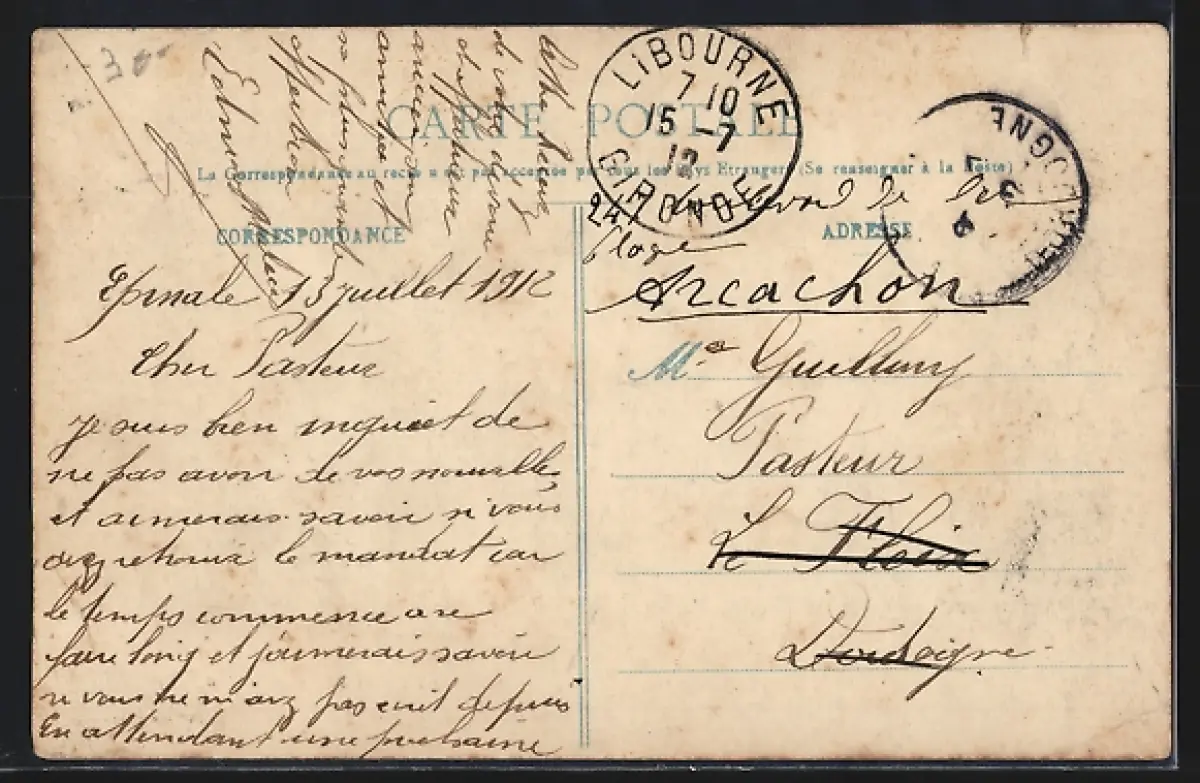 30
CARTE POSTALE
La Correspondance au recto n'est pas acceptée par tous les pays Etrangers (Se renseigner à la Poste)
CORRESPONDANCE
Epinale 13 juillet 1912
Cher Pasteur
je suis bien inquiet de
ne pas avoir de vos nouvelles
et aimerais savoir si vous
avez retrouvé le mandat car
le temps commence a se
faire long et j'aimerais savoir
si vous ne m'avez pas ecrit depuis
En attendant une prochaine
de votre
ancien
amitié et
plus
Edmond
LIBOURNE
7 10
15 -7
12
GIRONDE
DORDOGNE
ADRESSE
247 Boulevard de la
Plage
Arcachon
Mr Guillemy
Pasteur
Le Fleix
Dordogne